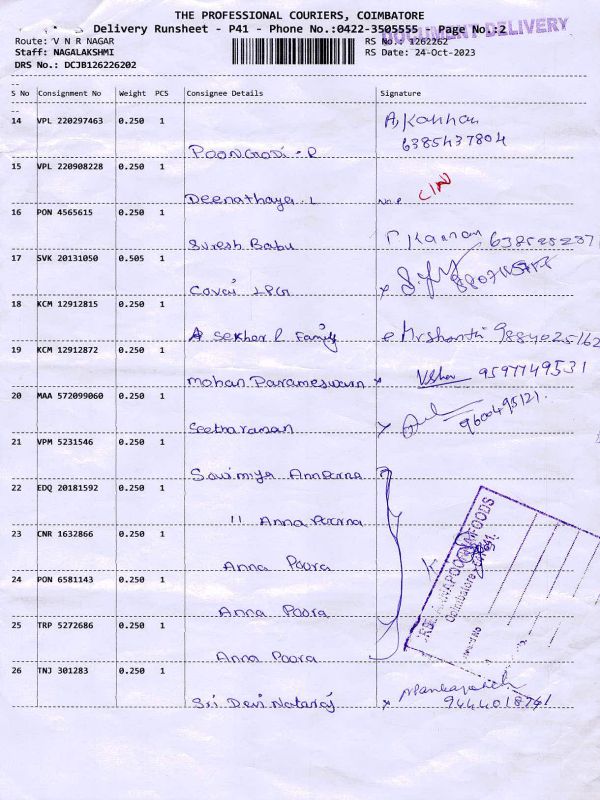 THE PROFESSIONAL COURIERS, COIMBATORE
Delivery Runsheet - P41 - Phone No.:0422-3505555 Page No.:2
DOCUMENT DELIVERY
Route: V N R NAGAR
RS No.: 1262262
Staff: NAGALAKSHMI
RS Date: 24-Oct-2023
DRS No.: DCJB126226202
S No Consignment No Weight PCS Consignee Details Signature
14 VPL 220297463 0.250 1 A, Kannan
6385437804
Poongodi - R
15 VPL 220908228 0.250 1
Deenathaya. L
16 PON 4565615 0.250 1
Suresh Babu Kannan
17 SVK 20131050 0.505 1
Covai LPG x
18 KCM 12912815 0.250 1
A Sekhar R Family 9884025162
19 KCM 12912872 0.250 1
Mohan Parameswarn x Usha 9597749531
20 MAA 572099060 0.250 1
Seetharaman x 9600495121.
21 VPM 5231546 0.250 1
Sowmiya Annporna
22 EDQ 20181592 0.250 1
11 Anna Poorna
23 CNR 1632866 0.250 1
Anna Poora
24 PON 6581143 0.250 1
Anna Poora
25 TRP 5272686 0.250 1
Anna Poora
FOODS
Coimbatore
26 TNJ 301283 0.250 1
Sri Devi Nataraj x 9444018741